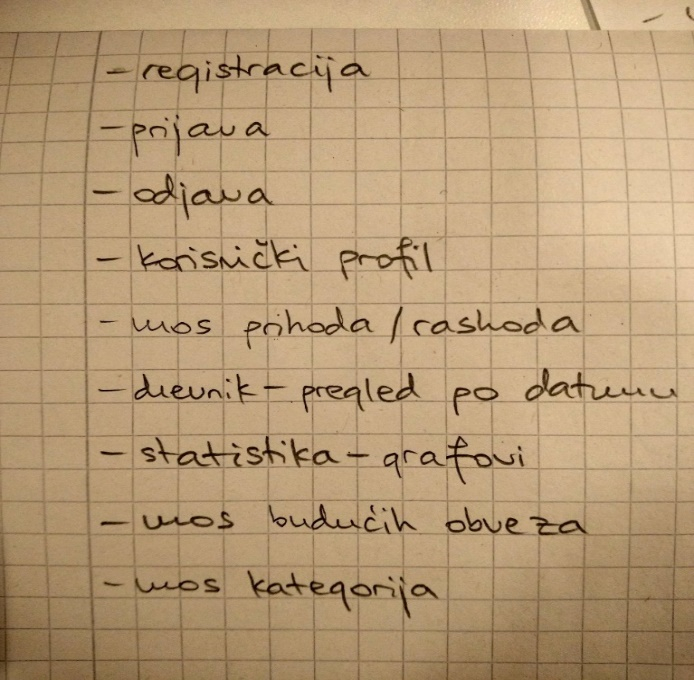 - registracija
- prijava
- odjava
- korisnički profil
- unos prihoda / rashoda
- dnevnik - pregled po datumu
- statistika - grafovi
- unos budućih obveza
- unos kategorija